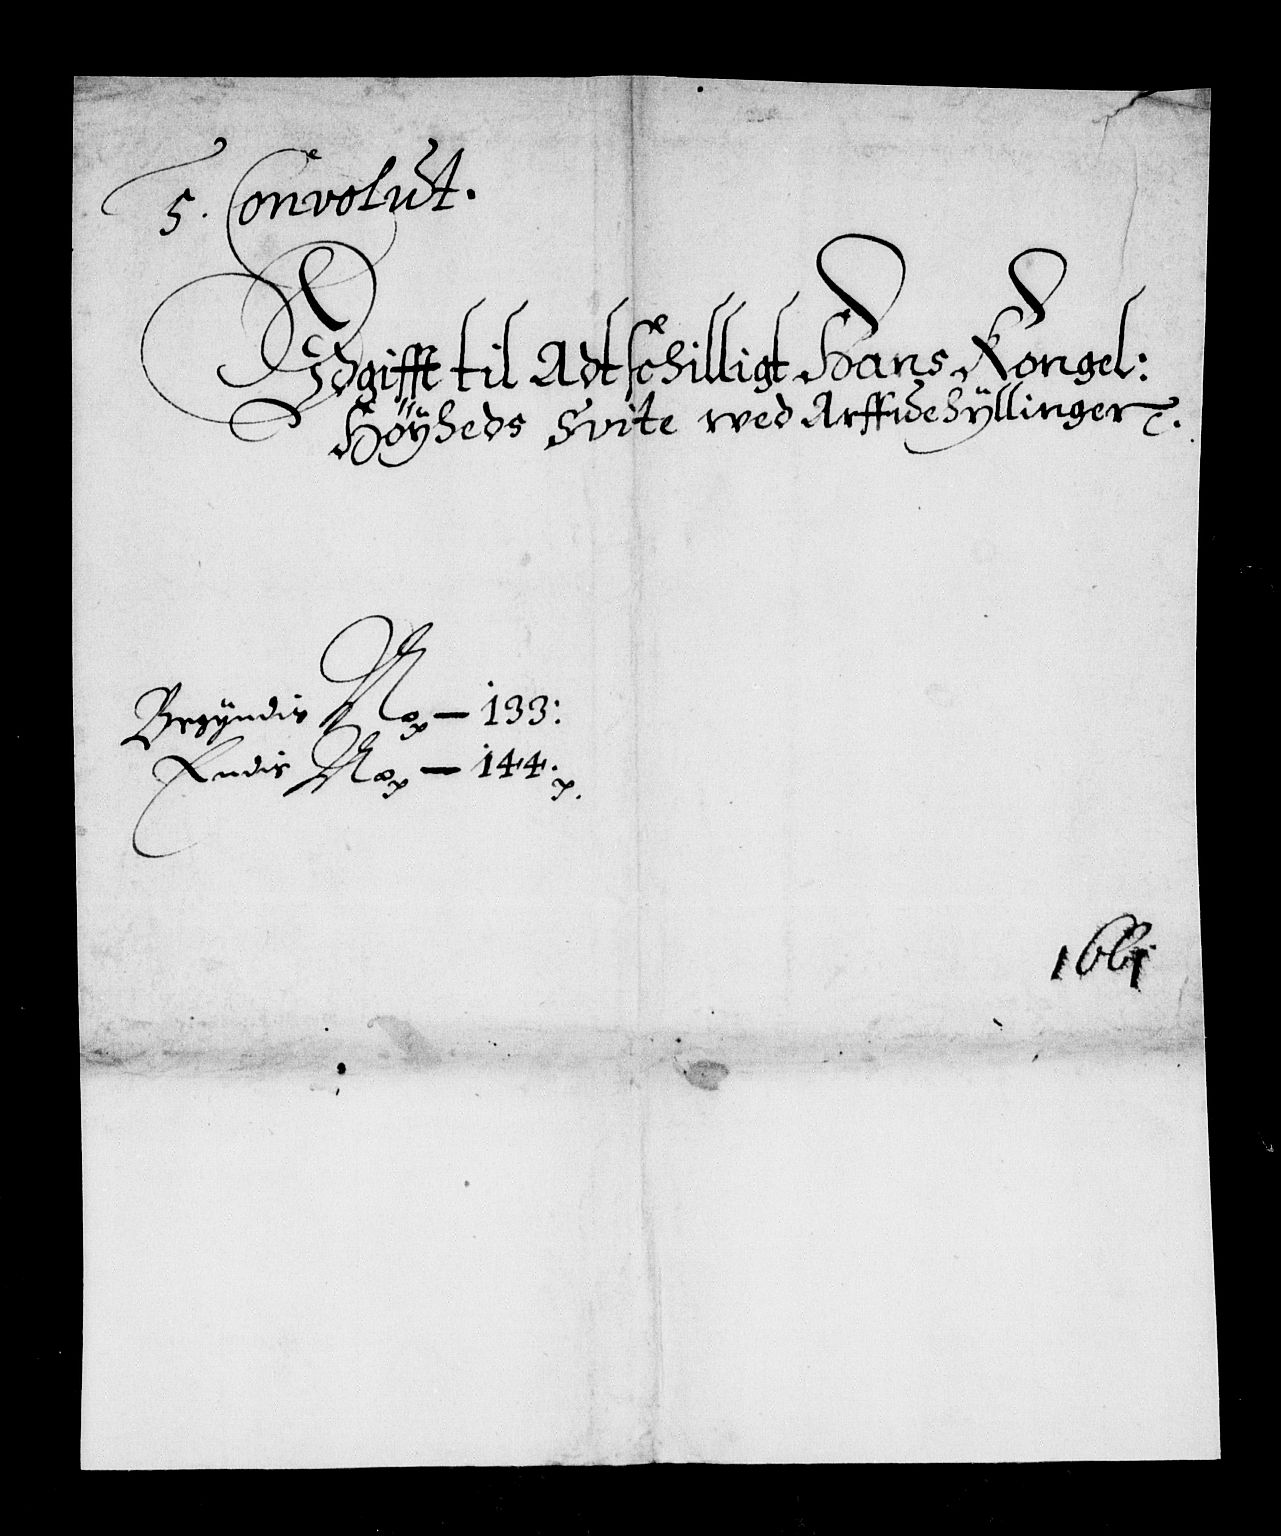 5. Convolut.
Udgifft til Adtschilligt Hans Kongel:
Höÿheds Svite wed Arffwehÿllinger
Begÿndis No — 133:
Endis No — 144.
1661